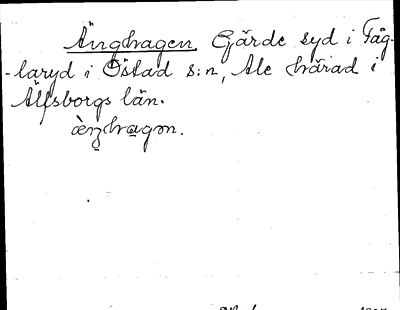 Änghagen. Gärde syd i Fåg-
-laryd i Östad s:n, Ale härad i
Älfsborgs län.